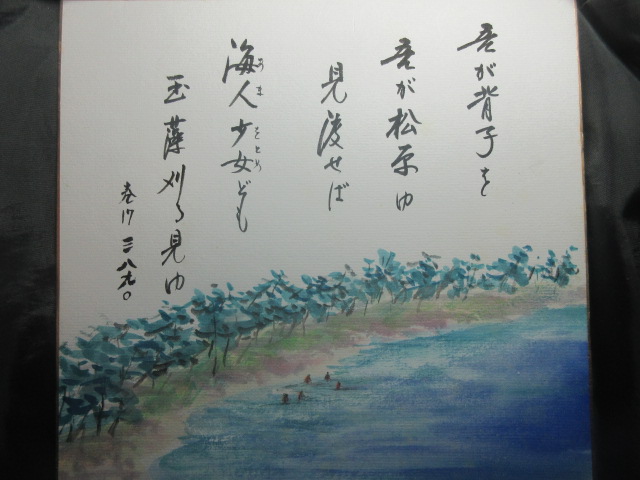 吾が背子を
吾が松原ゆ
見渡せば
海人少女ども
あま をとめ
玉藻刈る見ゆ
巻17 三八九〇